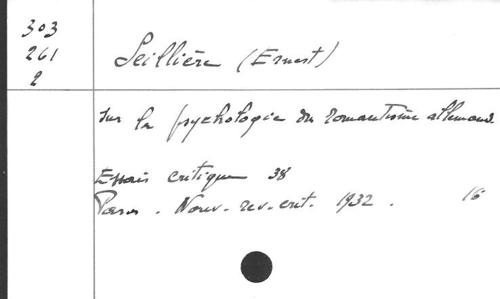 303
261
2
Seillière (Ernest)
Sur la psychologie du romantisme allemand.
Essais critiques 38
Paris. Nouv. rev. crit. 1932. 16